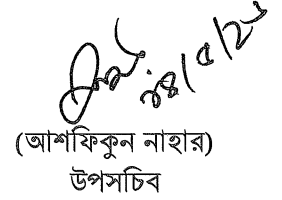 (আশফিকুন নাহার)
উপসচিব